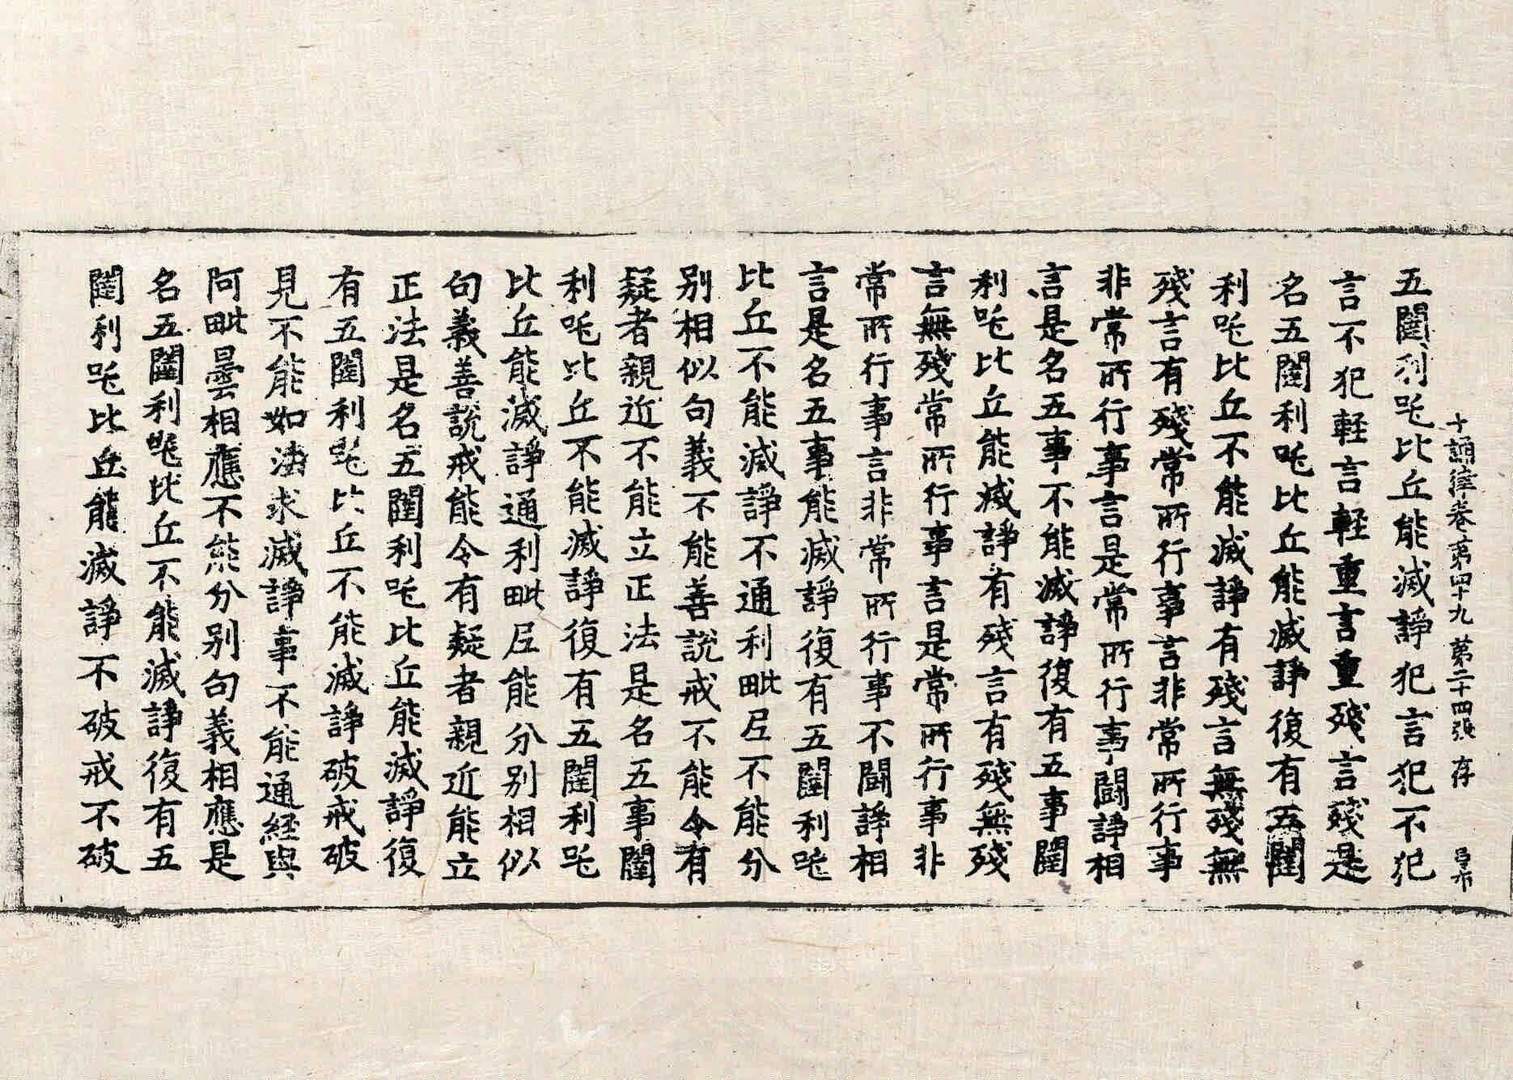 十誦律卷第四十九 第二十四張 存
五闥利吒比丘能滅諍犯言犯不犯
言不犯軽言軽重言重殘言殘是
名五闥利吒比丘能滅諍復有五闥
利吒比丘不能滅諍有殘言無殘無
殘言有殘常所行事言非常所行事
非常所行事言是常所行事闘諍相
言是名五事不能滅諍復有五事闥
利吒比丘能滅諍有殘言有殘無殘
言無殘常所行事言是常所行事非
常所行事言非常所行事不闘諍相
言是名五事能滅諍復有五闥利吒
比丘不能滅諍不通利毗尼不能分
別相似句義不能善說戒不能令有
疑者親近不能立正法是名五事闥
利吒比丘不能滅諍復有五闥利吒
比丘能滅諍通利毗尼能分別相似
句義善說戒能令有疑者親近能立
正法是名五闥利吒比丘能滅諍復
有五闥利吒比丘不能滅諍破戒破
見不能如法求滅諍事不能通經與
阿毗曇相應不能分別句義相應是
名五闥利吒比丘不能滅諍復有五
闥利吒比丘能滅諍不破戒不破